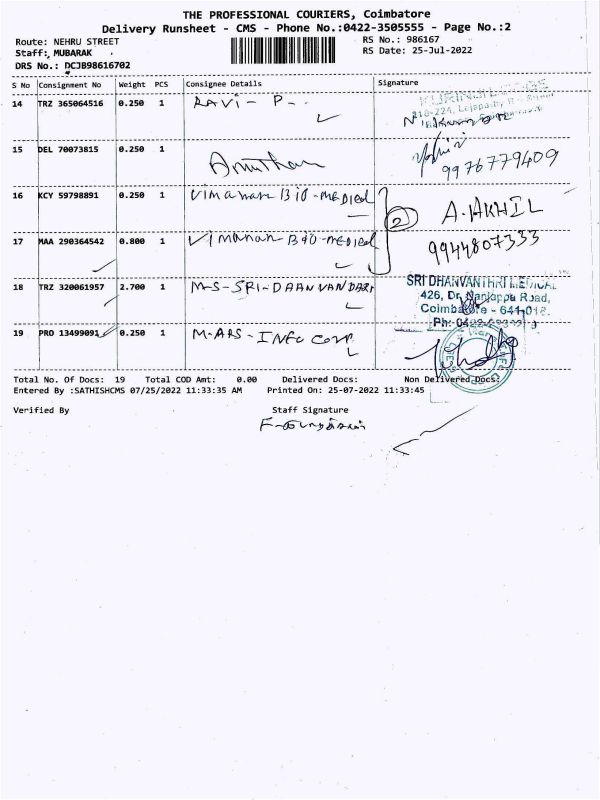 THE PROFESSIONAL COURIERS, Coimbatore
Delivery Runsheet - CMS - Phone No.:0422-3505555 - Page No.:2
Route: NEHRU STREET RS No.: 986167
Staff: MUBARAK RS Date: 25-Jul-2022
DRS No.: DCJB98616702
S No Consignment No Weight PCS Consignee Details Signature
14 TRZ 365064516 0.250 1 RAVi - P--
15 DEL 70073815 0.250 1 9976779409
16 KCY 59798891 0.250 1 Vimanan BiO-MEDicl 2 A.AKHIL
17 MAA 290364542 0.800 1 Vimanan BiO-MEDicl 9944807333
18 TRZ 320061957 2.700 1 M-S-SRI-DAANVANDARI
SRI DHANVANTHRI MEDICAL
426, Dr. Nanjappa Road,
Coimbatore - 641 018.
Ph: 0422
19 PRO 13499091 0.250 1 M-ARS-INFO COM
Total No. Of Docs: 19 Total COD Amt: 0.00 Delivered Docs: Non Delivered Docs:
Entered By :SATHISHCMS 07/25/2022 11:33:35 AM Printed On: 25-07-2022 11:33:45
Verified By Staff Signature